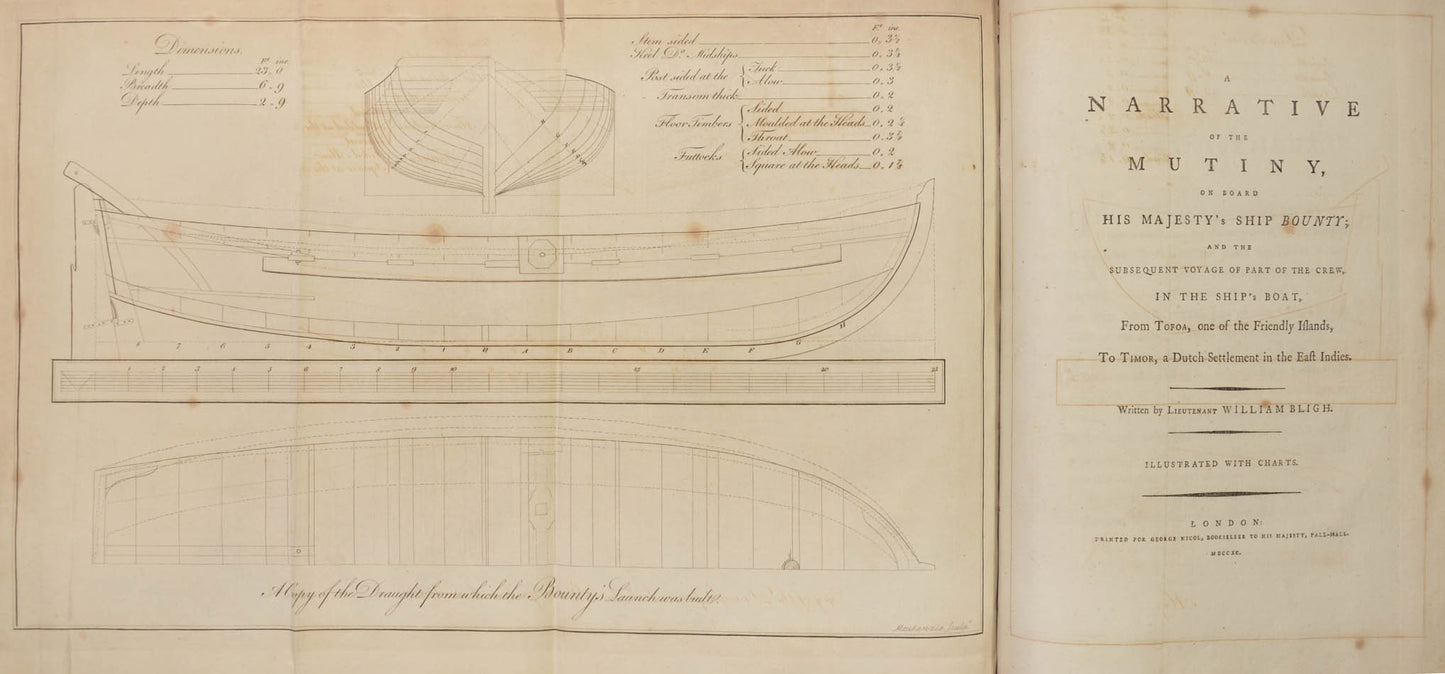 Dimensions.
Ft. inc.
Length 23, 0
Breadth 6 - 9
Depth 2 - 9
Ft. inc.
Stem sided 0. 3½
Keel Do. Midships 0. 3½
Post sided at the { Tuck 0. 3½
Alow 0. 3
Transom thick 0. 2
Floor Timbers { Sided 0. 2
Moulded at the Heads 0. 2
Throat 0. 3
Futtocks { Sided Alow 0. 2
Square at the Heads 0. 1
8 7 6 5 4 3 2 1 A B C D E F G H
1 2 3 4 5 6 7 8 9 10 15 20 23
A Copy of the Draught from which the Bounty's Launch was built.
Mackenzie Sculpt.
A
NARRATIVE
OF THE
MUTINY,
ON BOARD
HIS MAJESTY's SHIP BOUNTY;
AND THE
SUBSEQUENT VOYAGE OF PART OF THE CREW,
IN THE SHIP's BOAT,
From TOFOA, one of the Friendly Iſlands,
To TIMOR, a Dutch Settlement in the Eaſt Indies.
Written by LIEUTENANT WILLIAM BLIGH.
ILLUSTRATED WITH CHARTS.
LONDON:
PRINTED FOR GEORGE NICOL, BOOKSELLER TO HIS MAJESTY, PALL-MALL.
MDCCXC.